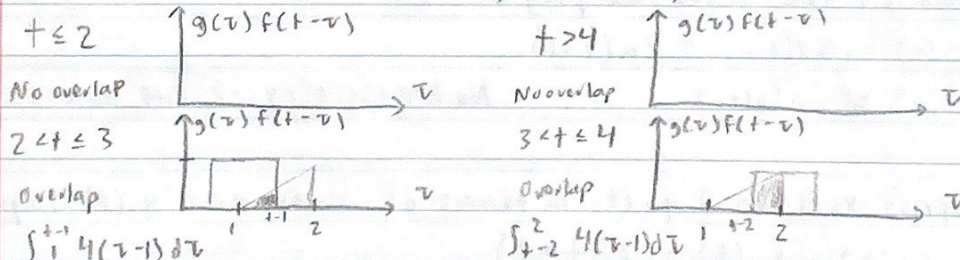 t ≤ 2
g(τ) f(t-τ)
No overlap
τ
2 < t ≤ 3
g(τ) f(t-τ)
Overlap
1
t-1
2
τ
∫₁^{t-1} 4(τ-1) dτ
t > 4
g(τ) f(t-τ)
No overlap
τ
3 < t ≤ 4
g(τ) f(t-τ)
Overlap
1
t-2
2
τ
∫_{t-2}^{2} 4(τ-1) dτ